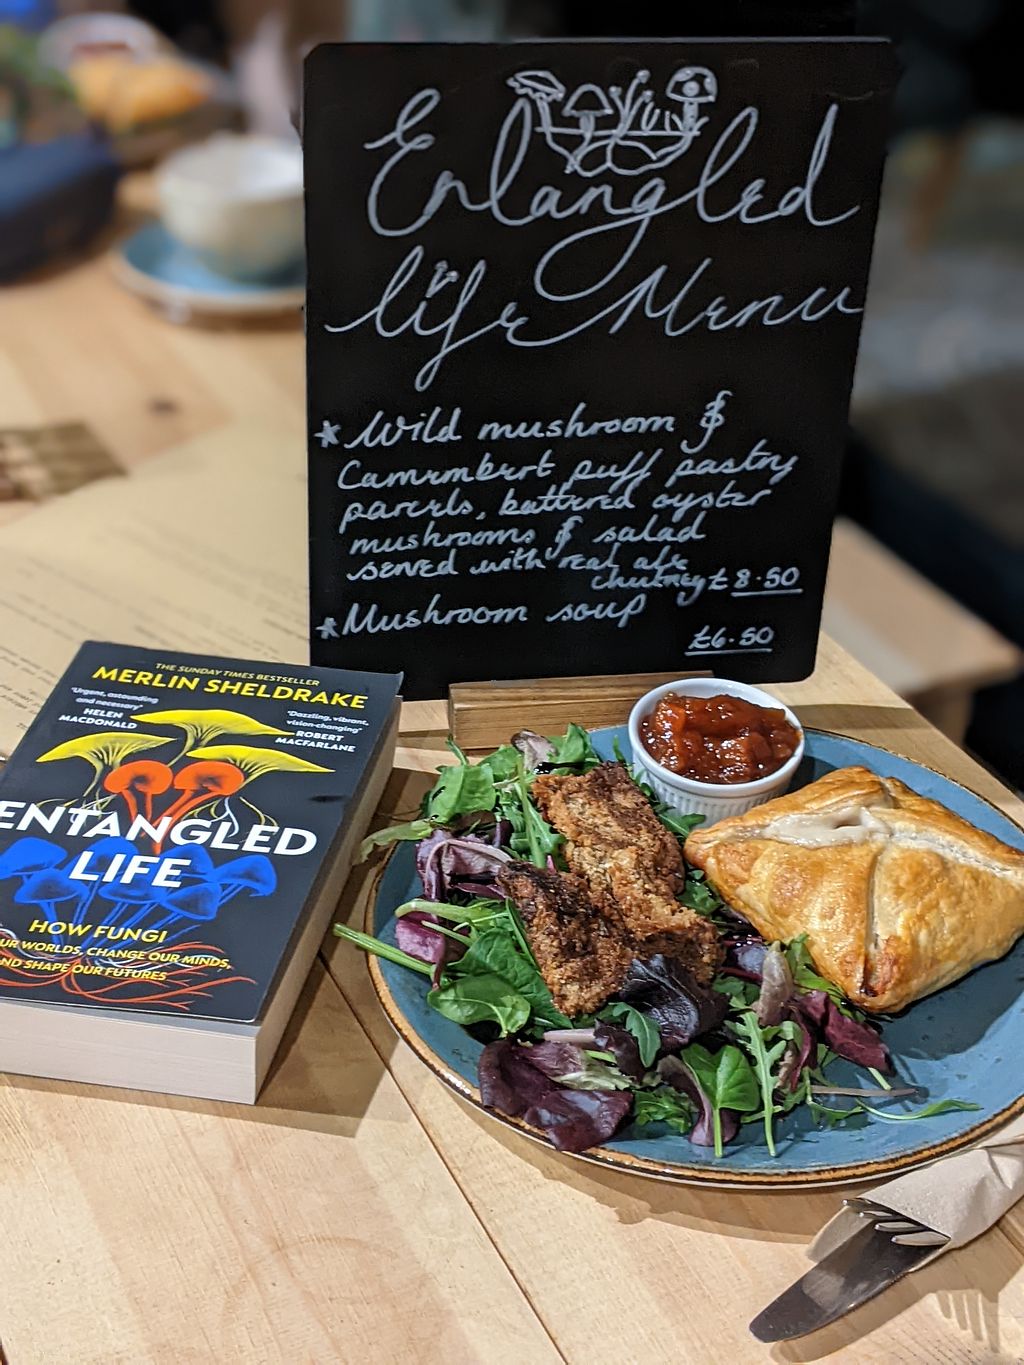 Entangled
life Menu
* Wild mushroom &
Camembert puff pastry
parcels, battered oyster
mushrooms & salad
served with real ale
chutney £8.50
* Mushroom soup
£6.50
THE SUNDAY TIMES BESTSELLER
MERLIN SHELDRAKE
'Urgent, astounding
and necessary'
HELEN
MACDONALD
'Dazzling, vibrant,
vision-changing'
ROBERT
MACFARLANE
ENTANGLED
LIFE
HOW FUNGI
UR WORLDS, CHANGE OUR MINDS,
ND SHAPE OUR FUTURES